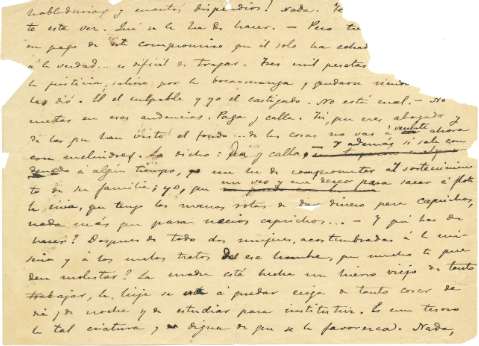 habladurías y cuantos dispendios! Nada. Te
to esta vez. Qué se le ha de hacer. — Pero tu
en pago de ese compromiso que él solo ha echado
á la verdad... es difícil de tragar. Tres mil pesetas
la justicia, salirse por la bocamanga y quedarse siendo
las dió. Él el culpable y yo el castigado. No está mal. — No
metas en esas andanzas. Paga y calla. Tú, que eres abogado y
de los que han visto el fondo de las cosas no vas á ahora
con melindres. Lo dicho: Dá y calla, — Y además si sale con
á algún tiempo, ha de comprometer al sostenimien
to de su familia; yo, que para sacar á flote
la mía, que tengo las manos rotas de dar dinero para caprichos,
nada más que para necios caprichos... — Y qué has de
hacer? Después de todo dos mujeres, acostumbradas á la mi
seria y á los malos tratos del ese hombre, qué mucho te pue
den molestar? La madre está hecha un hueso viejo de tanto
trabajar, la hija se vá á quedar ciega de tanto coser de
día, de noche y de estudiar para institutriz. Es un tesoro
la tal criatura, y digna de que se la favorezca. Nada,